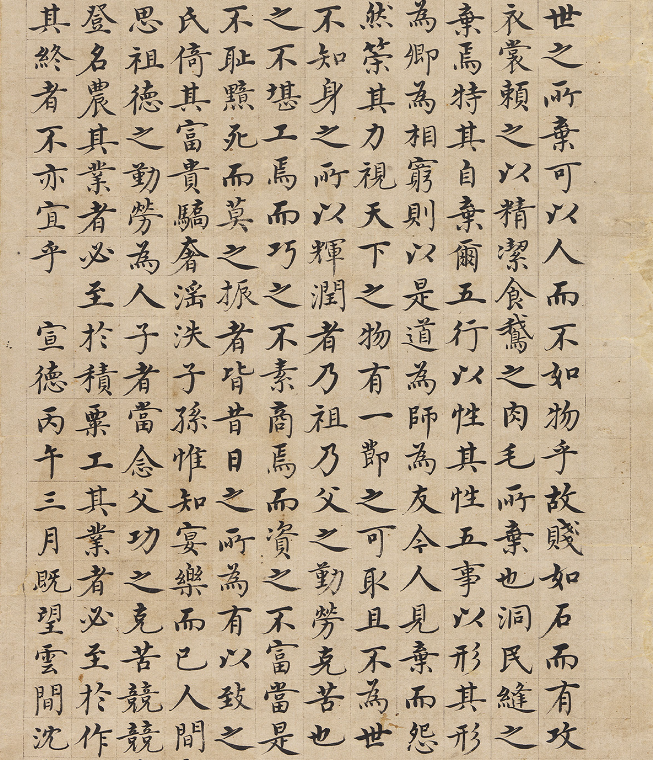 世之所棄可以人而不如物乎故賤如石而有攻
衣裳賴之以精潔食鵝之肉毛所棄也洞民縫之
棄焉特其自棄爾五行以性其性五事以形其形
為卿為相窮則以是道為師為友今人見棄而怨
然策其力視天下之物有一節之可取且不為世
不知身之所以輝潤者乃祖乃父之勤勞克苦也
之不堪工焉而巧之不素商焉而資之不富當是
不耻黥死而莫之振者皆昔日之所為有以致之
氏倚其富貴驕奢滛泆子孫惟知宴樂而已人間
思祖德之勤勞為人子者當念父功之克苦競競
登名農其業者必至於積粟工其業者必至於作
其終者不亦宜乎 宣德丙午三月既望雲間沈